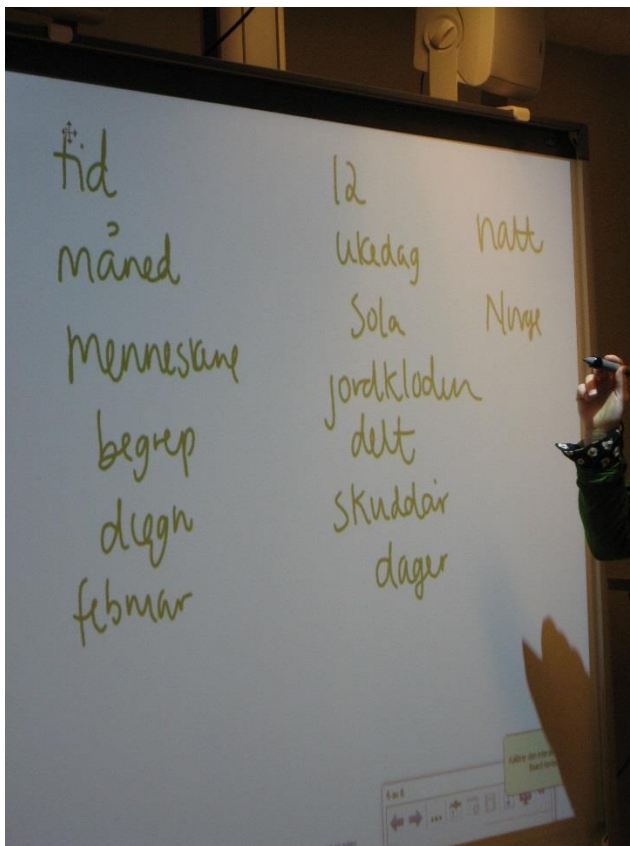 tid
måned
menneskene
begrep
døgn
februar
12
ukedag
Sola
jordkloden
delt
skuddår
dager
natt
Norge